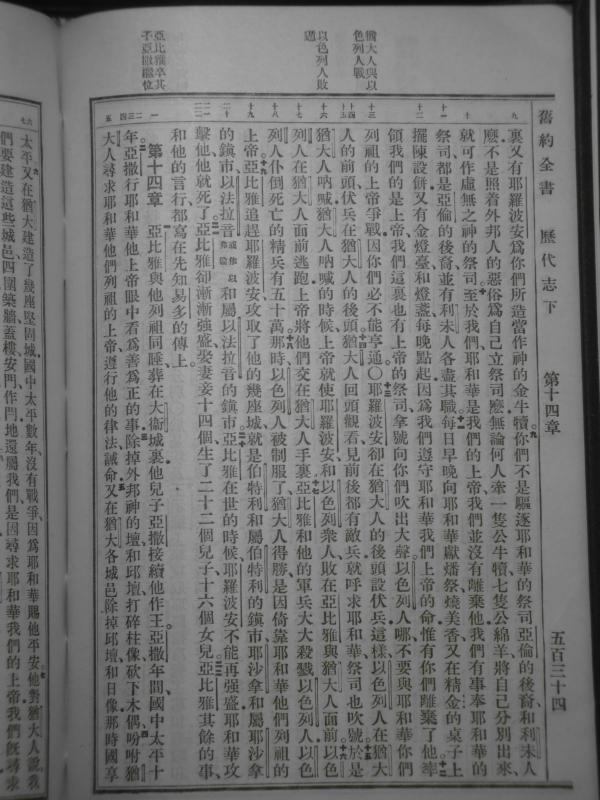 舊約全書 歷代志下 第十四章 五百三十四
猶大人與以
色列人戰
以色列人敗
遁
亞比雅卒其
子亞撒繼位
裏又有耶羅波安爲你們所造當作神的金牛犢你們不是驅逐耶和華的祭司亞倫的後裔和利未人
麽不是照着外邦人的惡俗爲自己立祭司麽無論何人牽一隻公牛犢七隻公綿羊將自己分別出來
就可作虛無之神的祭司至於我們耶和華是我們的上帝我們並沒有離棄他我們有事奉耶和華的
祭司都是亞倫的後裔並有利未人各盡其職每日早晚向耶和華獻燔祭燒美香又在精金的桌子上
擺陳設餅又有金燈臺和燈盞每晚點起因爲我們遵守耶和華我們上帝的命惟有你們離棄了他率
領我們的是上帝我們這裏也有上帝的祭司拿號向你們吹出大聲以色列人哪不要與耶和華你們
列祖的上帝爭戰因你們必不能亨通○耶羅波安卻在猶大人的後頭設伏兵這樣以色列人在猶大
人的前頭伏兵在猶大人的後頭猶大人回頭觀看見前後都有敵兵就呼求耶和華祭司也吹號於是
猶大人吶喊猶大人吶喊的時候上帝就使耶羅波安和以色列衆人敗在亞比雅與猶大人面前以色
列人在猶大人面前逃跑上帝將他們交在猶大人手裏亞比雅和他的軍兵大大殺戮以色列人以色
列人仆倒死亡的精兵有五十萬那時以色列人被制服了猶大人得勝是因倚靠耶和華他們列祖的
上帝亞比雅追趕耶羅波安攻取了他的幾座城就是伯特利和屬伯特利的鎮市耶沙拿和屬耶沙拿
的鎮市以法拉音或作以弗倫和屬以法拉音的鎮市亞比雅在世的時候耶羅波安不能再強盛耶和華攻
擊他他就死了亞比雅卻漸漸強盛娶妻妾十四個生了二十二個兒子十六個女兒亞比雅其餘的事
和他的言行都寫在先知易多的傳上
第十四章 亞比雅與他列祖同睡葬在大衞城裏他兒子亞撒接續他作王亞撒年間國中太平十
年亞撒行耶和華他上帝眼中看爲善爲正的事除掉外邦神的壇和邱壇打碎柱像砍下木偶吩咐猶
大人尋求耶和華他們列祖的上帝遵行他的律法誡命又在猶大各城邑除掉邱壇和日像那時國享
太平又在猶大建造了幾座堅固城國中太平數年沒有戰爭因爲耶和華賜他平安他對猶大人說我
們要建造這些城邑四圍築牆蓋樓安門作閂地還屬我們是因尋求耶和華我們的上帝我們旣尋求